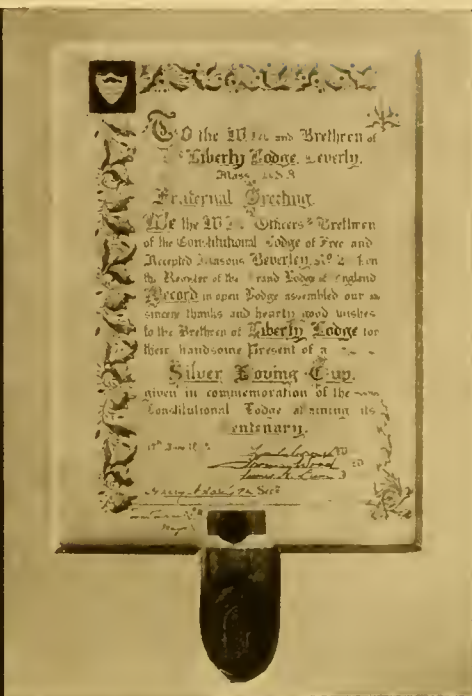 To the W. and Brethren of
Liberty Lodge, Beverly,
Mass. U.S.A
Fraternal Greeting.
We the W. Officers & Brethren
of the Constitutional Lodge of Free and
Accepted Masons Beverley, No 2 on
the Register of the Grand Lodge of England
Record in open Lodge assembled our
sincere thanks and hearty good wishes
to the Brethren of Liberty Lodge for
their handsome Present of a
Silver Loving Cup,
given in commemoration of the
Constitutional Lodge attaining its
Centenary.
Secy